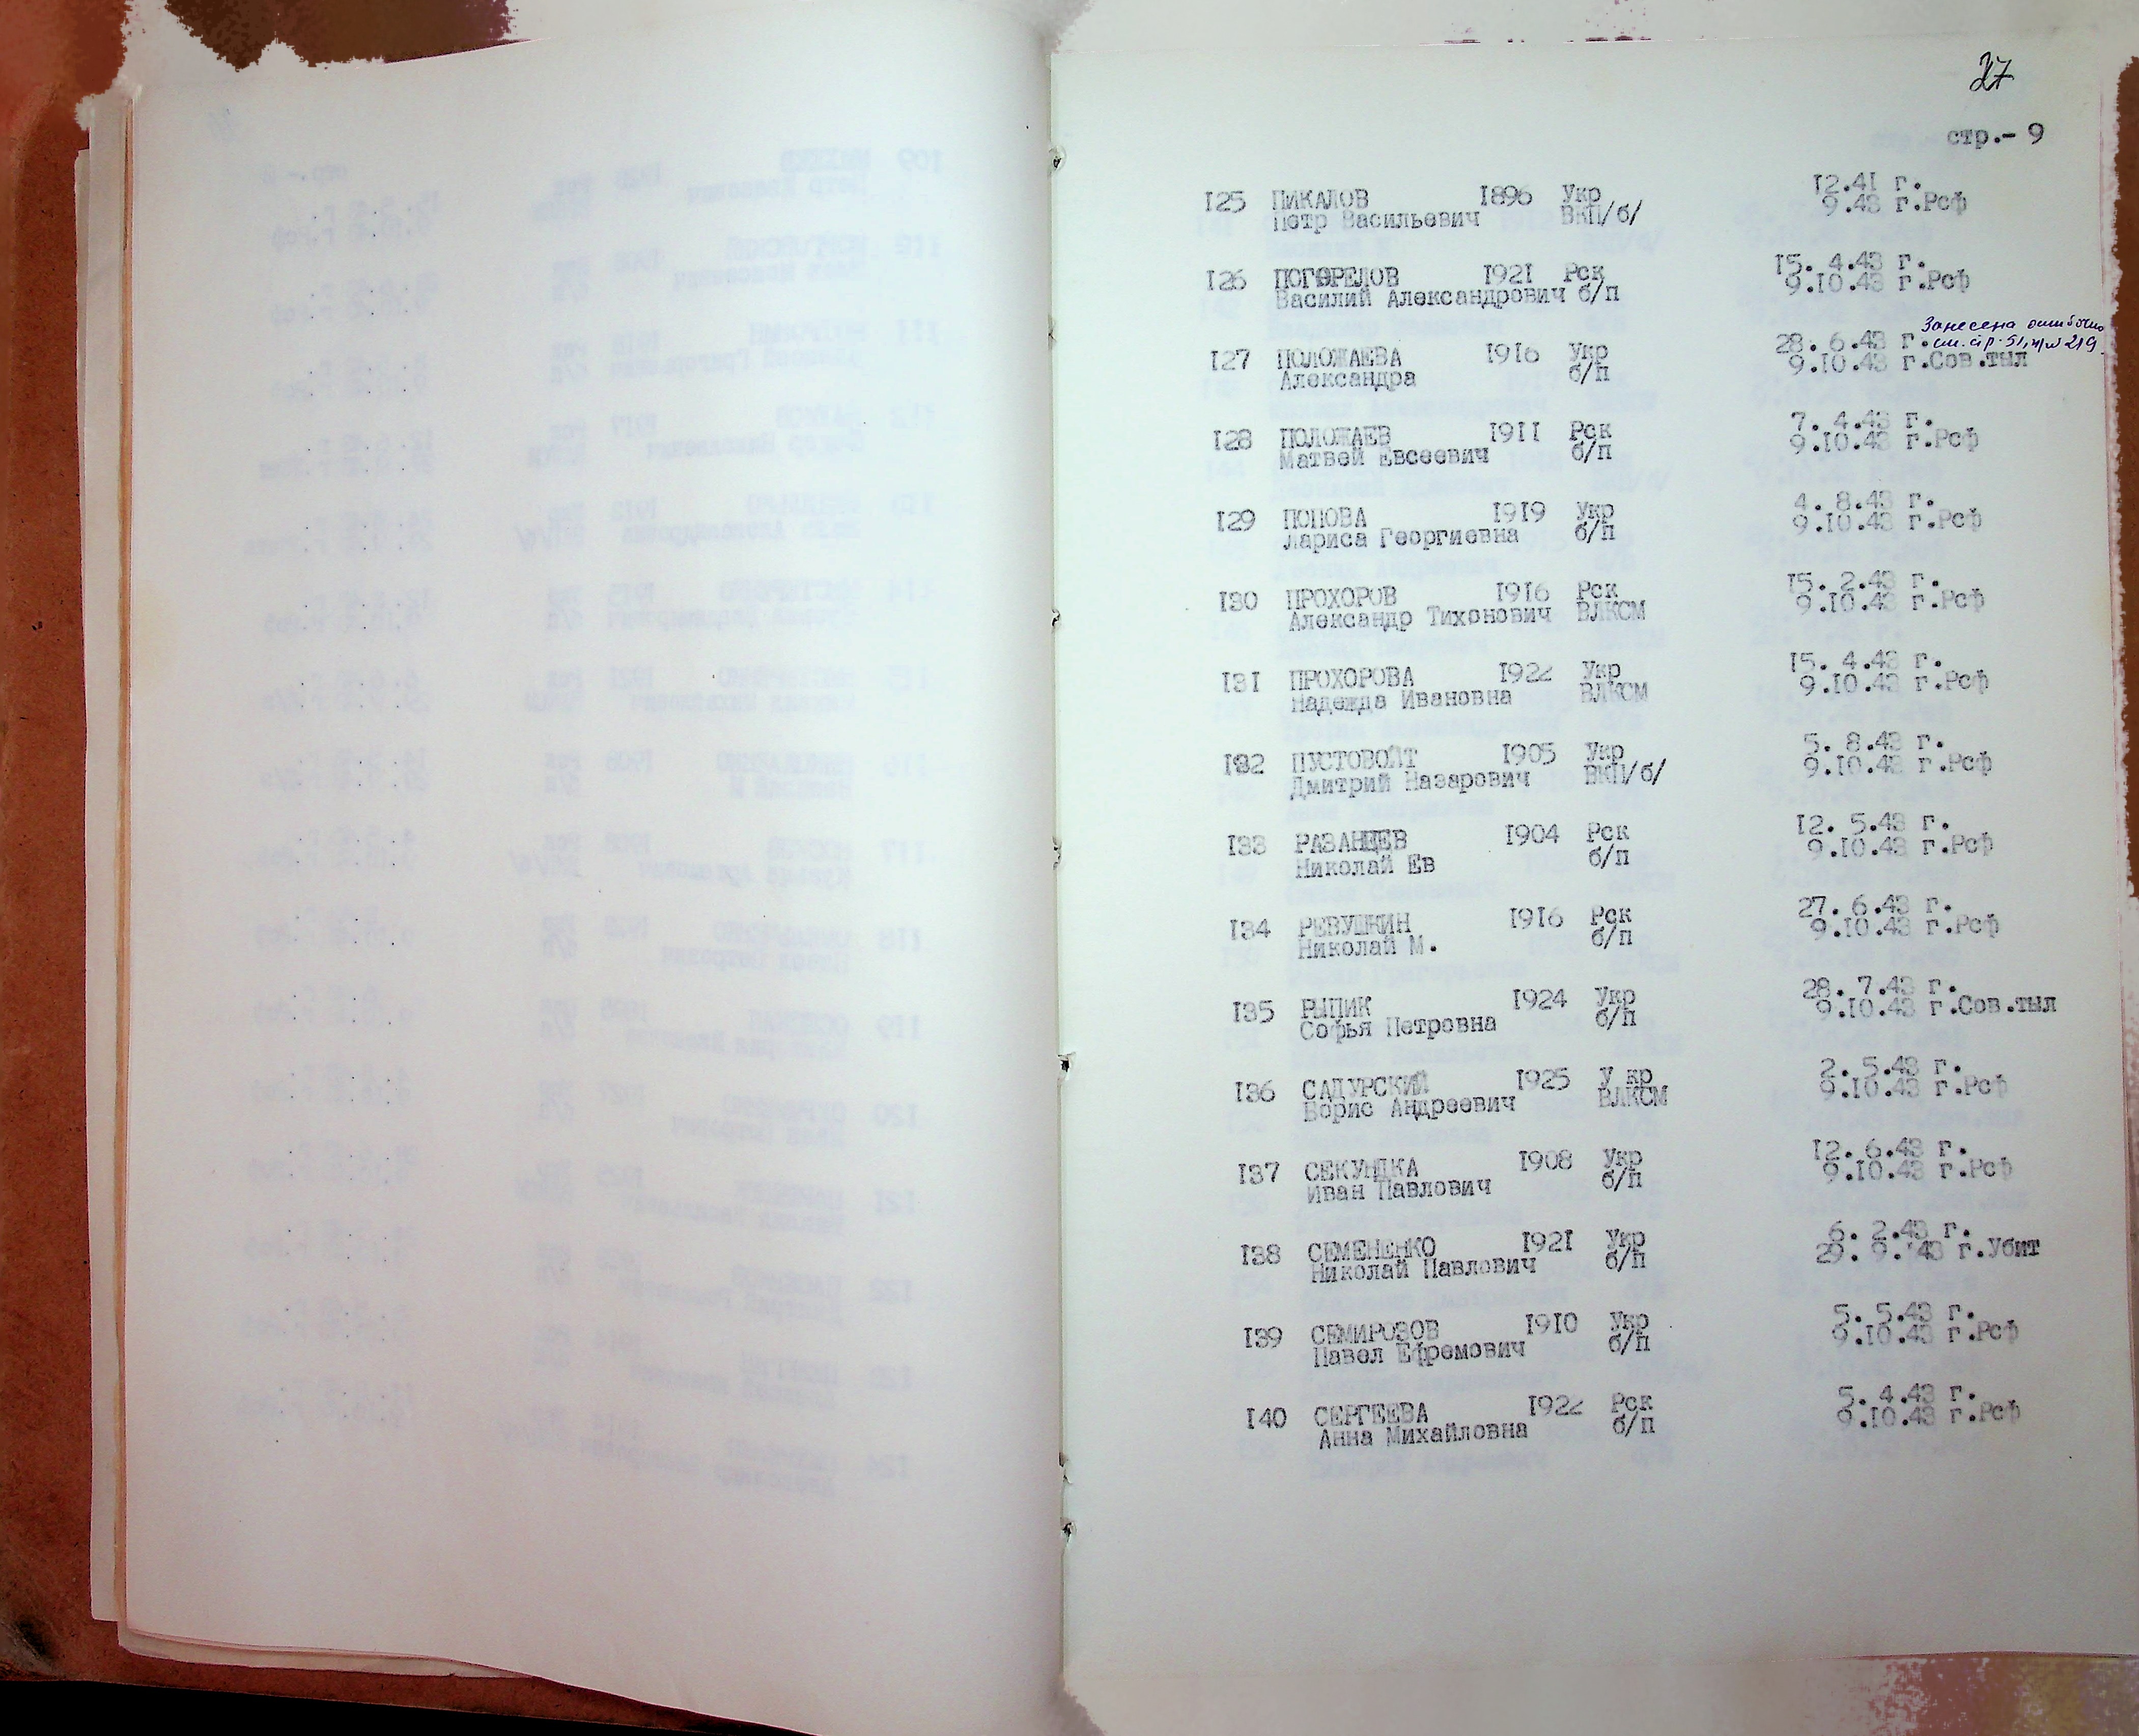 27
стр.- 9
I25 ПИКАЛОВ I896 Укр I2.4I г.
Петр Васильевич ВКП/б/ 9.43 г.Рсф
I26 ПОГОРЕЛОВ I92I Рск I5. 4.43 г.
Василий Александрович б/п 9.I0.43 г.Рсф
Занесена ошибочно
см. стр. 51, п/п 219.
I27 ПОЛОЖАЕВА I9I6 Укр 28. 6.43 г.
Александра б/п 9.I0.43 г.Сов.тыл
I28 ПОЛОЖАЕВ I9II Рск 7. 4.43 г.
Матвей Евсеевич б/п 9.I0.43 г.Рсф
I29 ПОПОВА I9I9 Укр 4. 8.43 г.
Лариса Георгиевна б/п 9.I0.43 г.Рсф
I30 ПРОХОРОВ I9I6 Рск I5. 2.43 г.
Александр Тихонович ВЛКСМ 9.I0.43 г.Рсф
I3I ПРОХОРОВА I922 Укр I5. 4.43 г.
Надежда Ивановна ВЛКСМ 9.I0.43 г.Рсф
I32 ПУСТОВОЙТ I905 Укр 5. 8.43 г.
Дмитрий Назарович ВКП/б/ 9.I0.43 г.Рсф
I33 РАЗАНЦЕВ I904 Рск I2. 5.43 г.
Николай Ев б/п 9.I0.43 г.Рсф
I34 РЕВУШКИН I9I6 Рск 27. 6.43 г.
Николай М. б/п 9.I0.43 г.Рсф
I35 РЫПИК I924 Укр 28. 7.43 г.
Софья Петровна б/п 9.I0.43 г.Сов.тыл
I36 САДУРСКИЙ I925 У кр 2. 5.43 г.
Борис Андреевич ВЛКСМ 9.I0.43 г.Рсф
I37 СЕКУНДКА I908 Укр I2. 6.43 г.
Иван Павлович б/п 9.I0.43 г.Рсф
I38 СЕМЕНЕНКО I92I Укр 6. 2.43 г.
Николай Павлович б/п 29. 9.43 г.Убит
I39 СЕМИРОЗОВ I9I0 Укр 5. 5.43 г.
Павел Ефремович б/п 9.I0.43 г.Рсф
I40 СЕРГЕЕВА I922 Рск 5. 4.43 г.
Анна Михайловна б/п 9.I0.43 г.Рсф